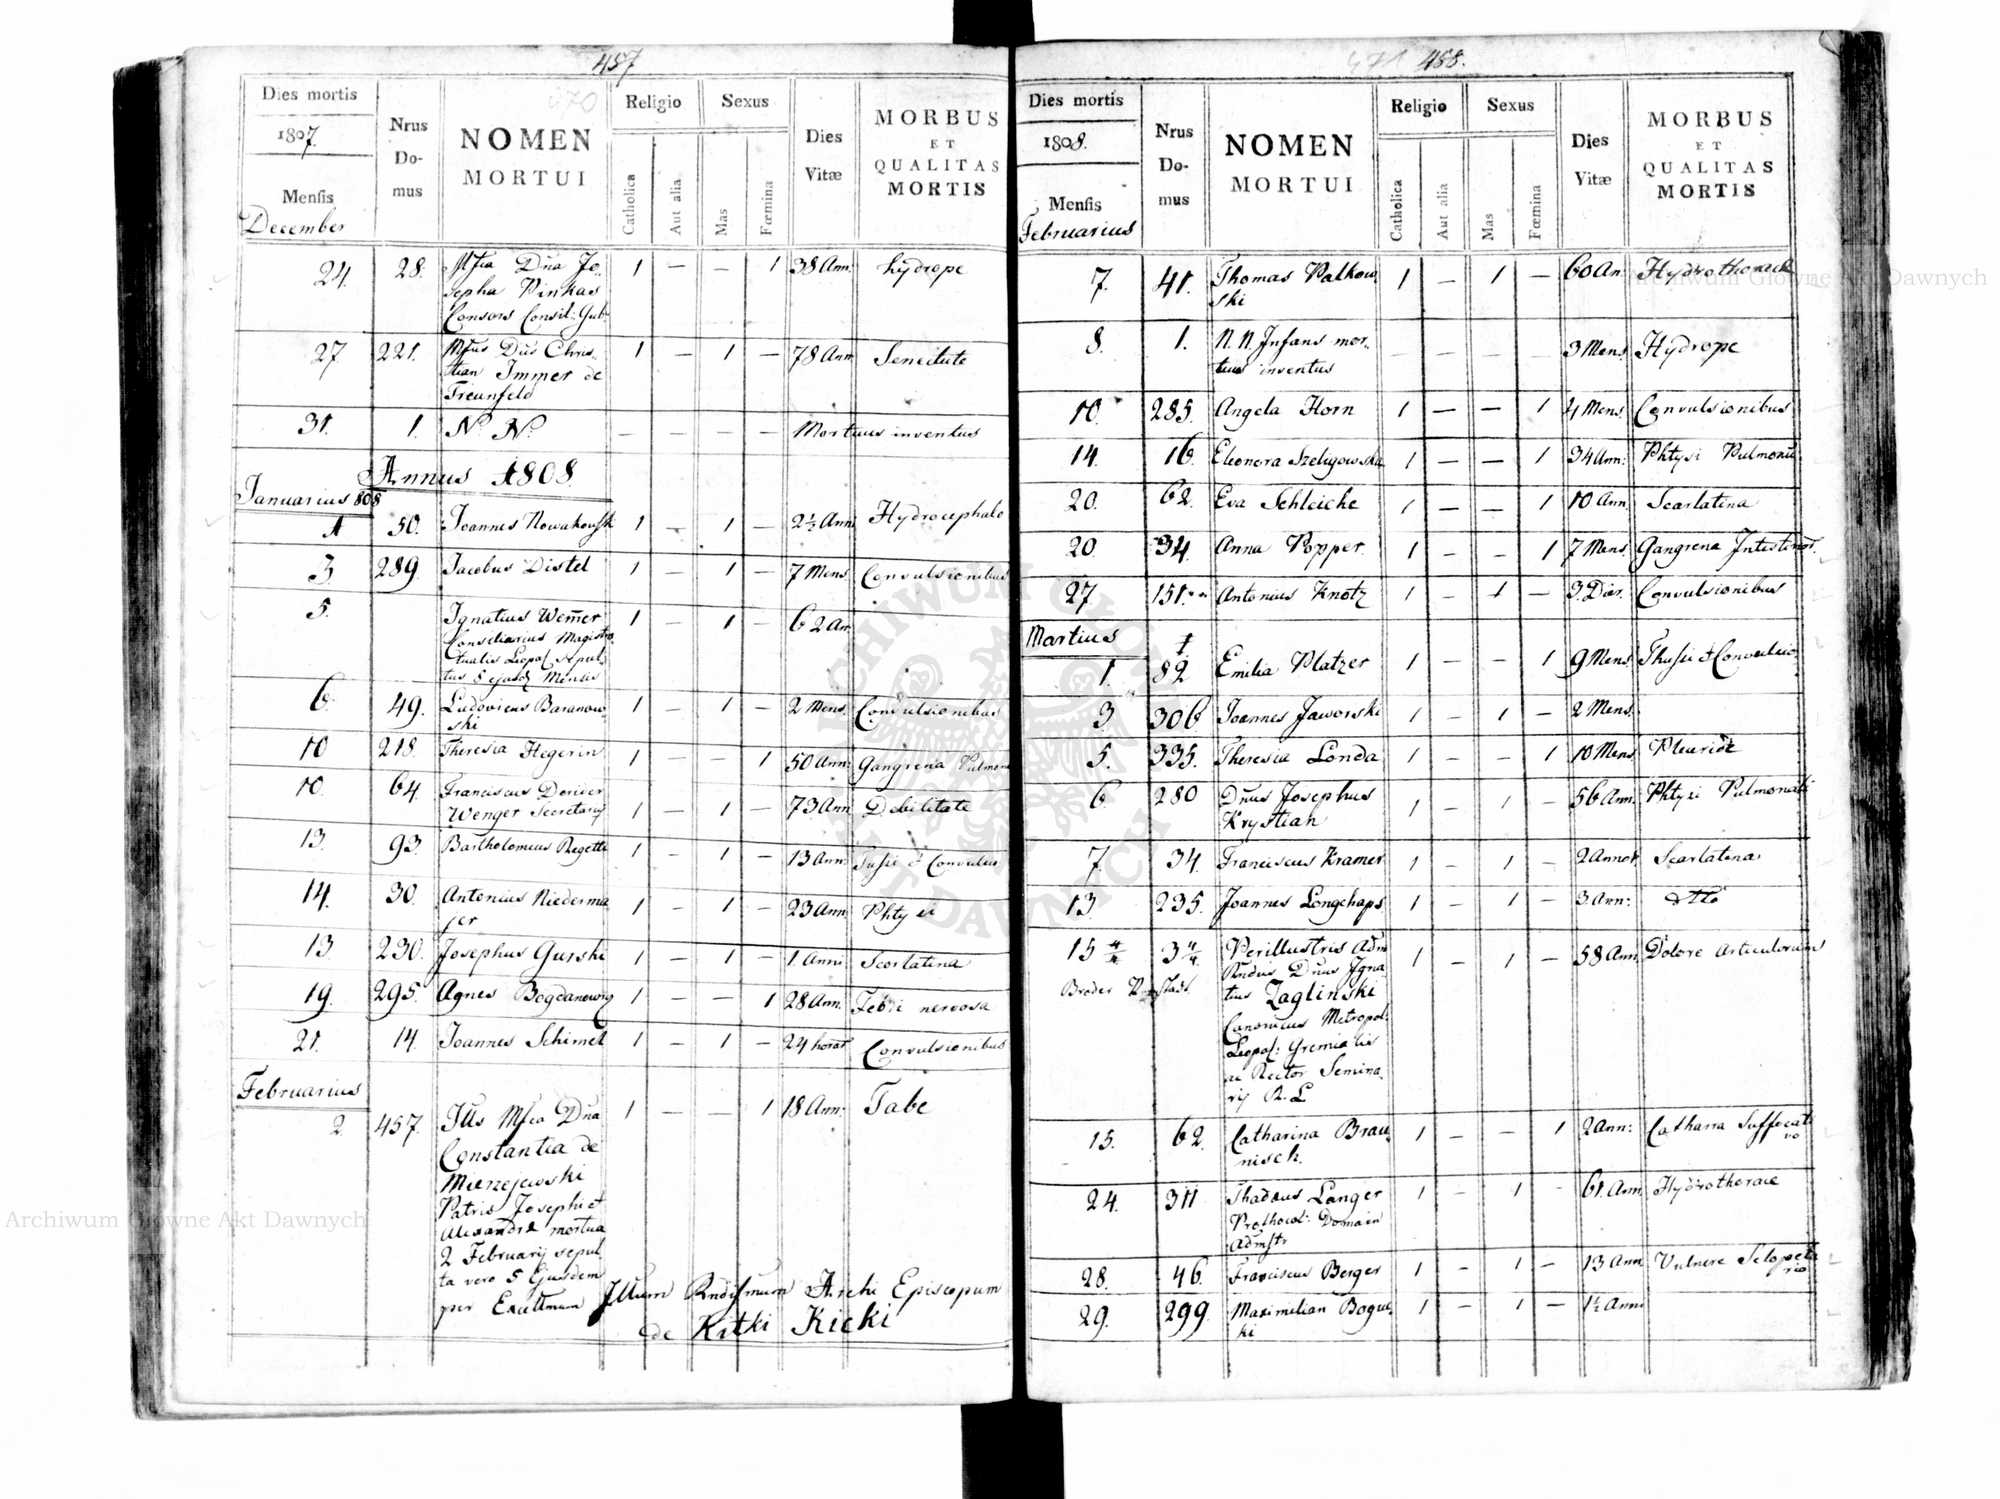 457
470
Dies mortis
1807.
Mensis
December
Nrus
Do-
mus
NOMEN
MORTUI
Religio
Catholica
Aut alia
Sexus
Mas
Fœmina
Dies
Vitæ
MORBUS
ET
QUALITAS
MORTIS
24. 28. Mfca Dna Jo- 1 — — 1 38 Ann. hydrope
sepha Pinkas
Consors Consil: Gub:
27. 221. Mfcus Dus Chris- 1 — 1 — 78 Ann Senectute
tian Immer de
Treunfeld
31. 1. N. N. — — — — Mortuus inventus
Annus 1808.
Januarius 808
1 50. Joannes Nowakowsk 1 — 1 — 2½ Ann Hydrocephalo
3 289. Jacobus Distel 1 — 1 — 7 Mens. Convulsionibus
5. Ignatius Wem̄er 1 — 1 — 62 An
Consiliarius Magistra
tualis Leopol Sepul-
tus 8 ejusd Mensis
6. 49. Ludovicus Baranow- 1 — 1 — 2 Mens. Convulsionibus
ski
10 218. Theresia Hegerin 1 — — 1 50 Ann: Gangrena Pulmon
10. 64. Franciscus
Wenger Secretarij 1 — 1 — 73 Ann Debilitate
13. 93. Bartholomeus Regetti 1 — 1 — 13 Ann: Tussi et Convulsio
14. 30. Antonius Niederma 1 — 1 — 23 Ann Phtysi
jer
13. 230. Josephus Gurski 1 — 1 — 1. Anni Scarlatina
19. 295. Agnes Bogdanowicz 1 — — 1 28 Ann. Febri nervosa
21. 14. Joannes Schimel 1 — 1 — 24 horar Convulsionibus
Februarius
2. 457. Ills Mfca Dna 1 — — 1 18 Ann: Tabe
Constantia de
Mierzejewski
Patris Josephi et
Alexandrae mortua
2 Februarij sepul
ta vero 5 Ejusdem
per Excellmum Illum Rndissmum Archi Episcopum
de Kitki Kicki
471 458.
Dies mortis
1808.
Mensis
Februarius
Nrus
Do-
mus
NOMEN
MORTUI
Religio
Catholica
Aut alia
Sexus
Mas
Fœmina
Dies
Vitæ
MORBUS
ET
QUALITAS
MORTIS
7. 41. Thomas Palkow- 1 — 1 — 60 An. Hydrothorace
ski
8. 1. N. N. Infans mor- — — 3 Mens. Hydrope
tuus inventus
10. 285. Angela Horn 1 — — 1 4 Mens. Convulsionibus
14. 16. Eleonora Szeligowska 1 — — 1 34 Ann: Phtysi Pulmonū
20. 62. Eva Schleiche 1 — — 1 10 Ann. Scarlatina
20 34. Anna Popper. 1 — — 1 7 Mens. Gangrena Intestinor.
27. 151. Antonius Knotz 1 — 1 — 3. Dier. Convulsionibus
Martius
1. 82 Emilia Platzer 1 — — 1 9 Mens. Thussi et Convulsio
3 306 Joannes Jaworski 1 — 1 — 2 Mens.
5. 335. Theresia Londa 1 — — 1 10 Mens. Pleuride
6 280 Dnus Josephus 1 — 1 — 56 Ann. Phtysi Pulmonali
Krystian
7. 34. Franciscus Kramer 1 — 1 — 2 Annor. Scarlatina
13. 235. Joannes Longchaps 1 — 1 — 3 Ann: dtto
15 4/4 3 4/4 Perillustris Adm 1 — 1 — 58 Ann Dolore Articulorum
Broder Vorstadt. Rndus Dnus Igna
tius Zaglinski
Canonicus Metropol:
Leopol: Gremialis
ac Rector Semina
rij R. L
15. 62. Catharina Brau- 1 — — 1 2 Ann: Catharra Suffocati
nisch. vo
24. 311 Thadeus Langer 1 — 1 — 61. Ann. Hydrothorace
Prothocol: Domain
Admstr
28. 46. Franciscus Berger 1 — 1 — 13 Ann Vulnere Sclopeta
rio
29. 299. Maximilian Bogu- 1 — 1 — 1½ Anni
ki
Archiwum Główne Akt Dawnych
Archiwum Główne Akt Dawnych
ARCHIWUM GŁÓWNE AKT DAWNYCH